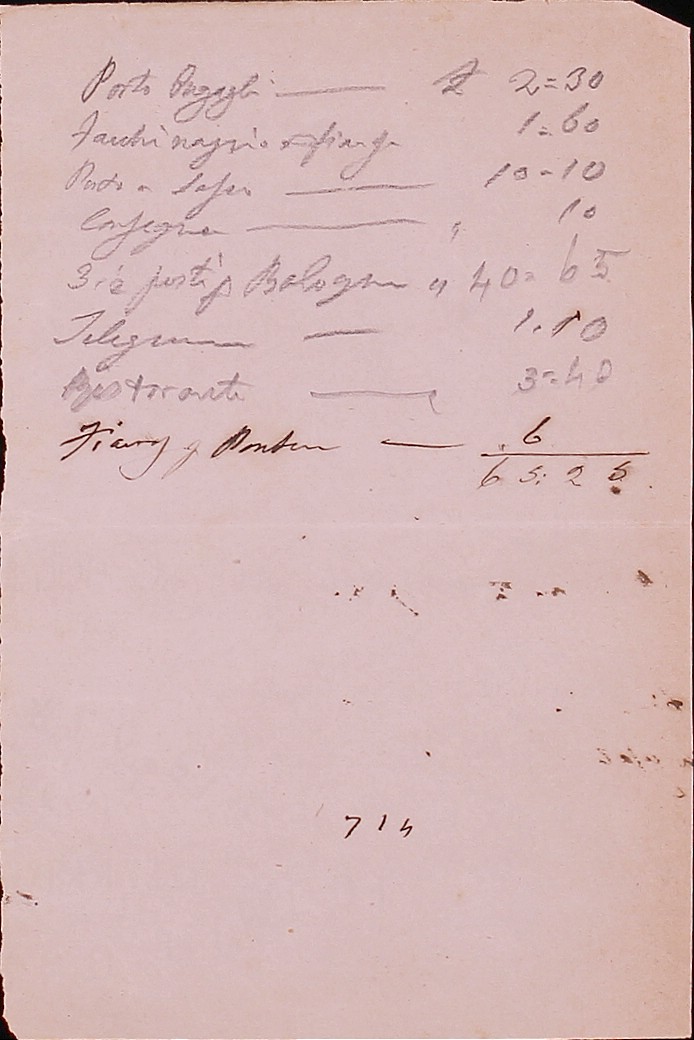 Porto Bagagli — £ 2=30
Facchinaggio e fiacre 1=60
Porto a 10=10
Consegna — " 10
3 posti p Bologna " 40=65
Telegramma — 1.10
Ristorante — 3=40
Fiacre p — 6
65:25
714